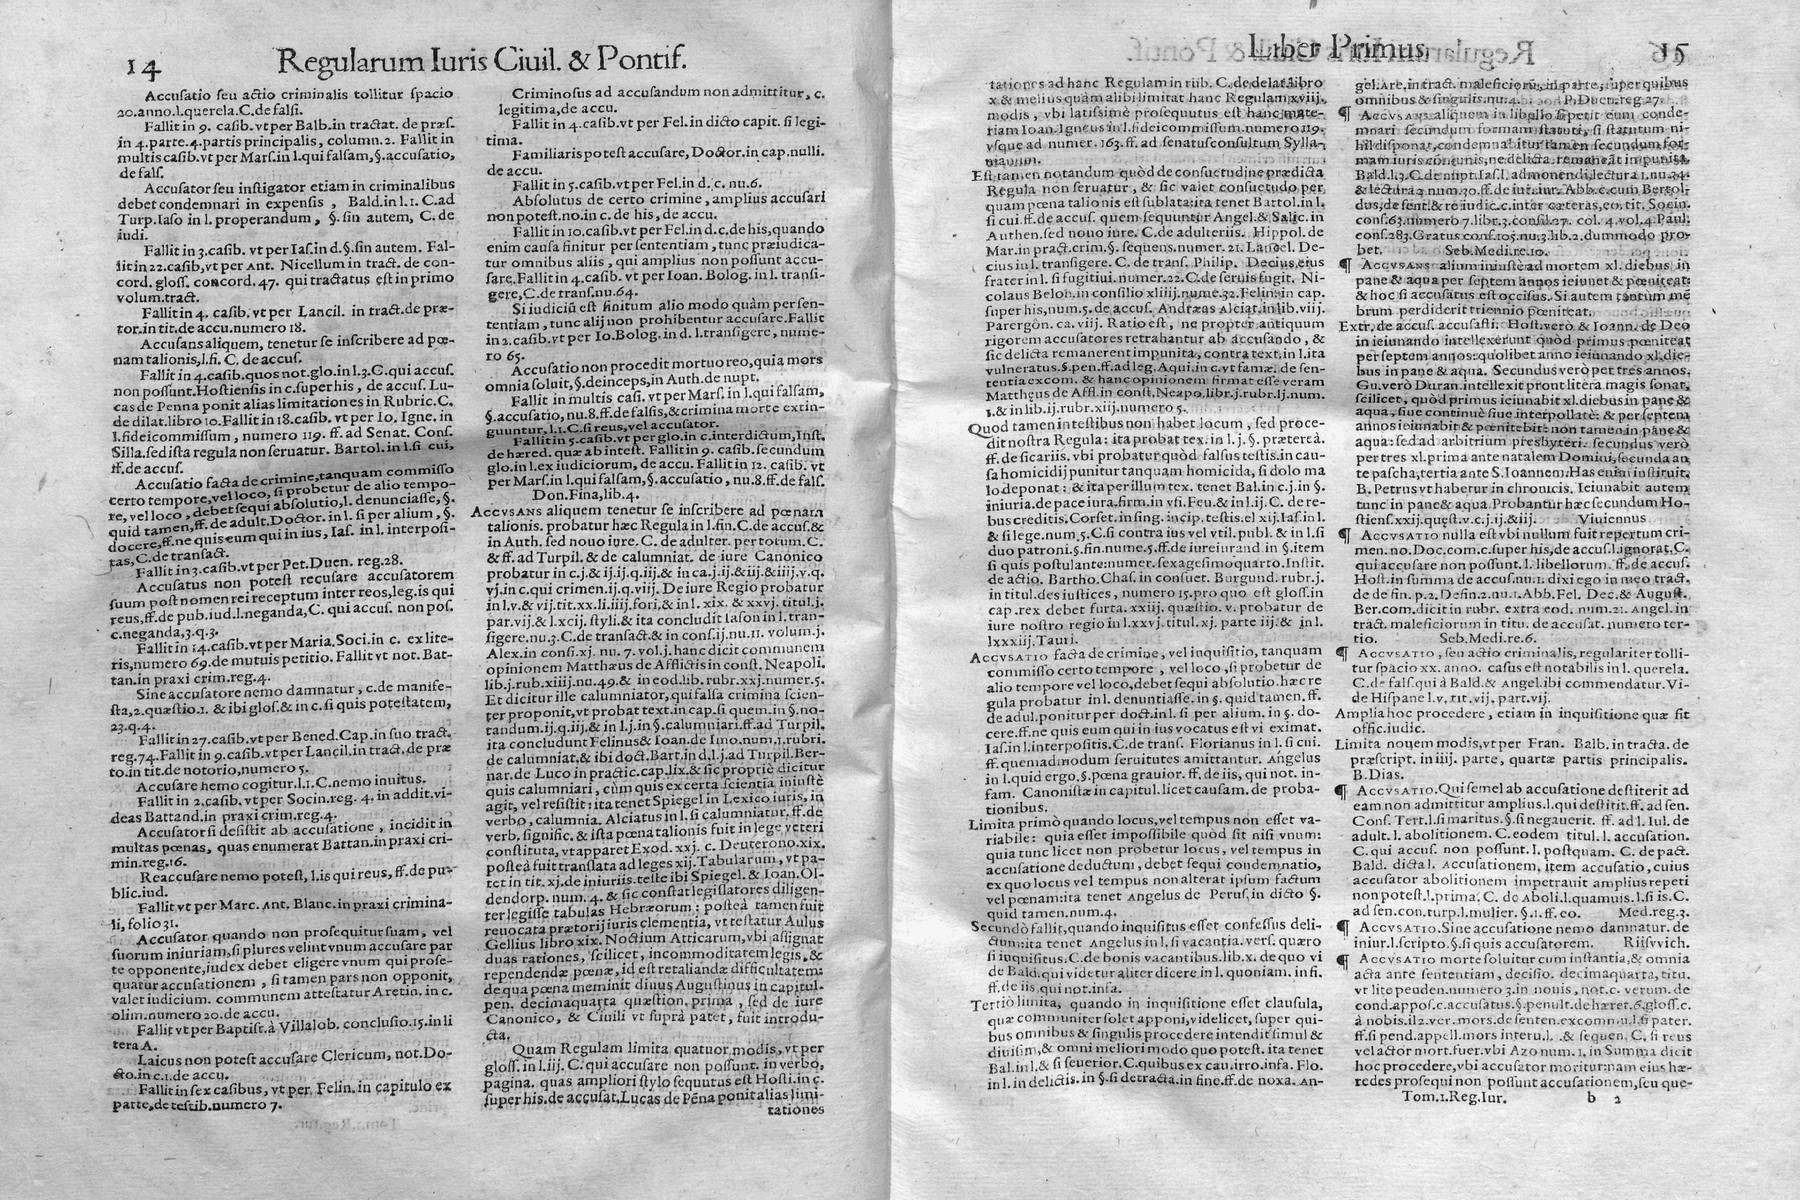 14 Regularum Iuris Ciuil. & Pontif.
Accusatio seu actio criminalis tollitur spacio
20.anno.l.querela.C.de falsi.
Fallit in 9. casib. vt per Balb.in tractat. de præs.
in 4.parte.4.partis principalis, column.2. Fallit in
multis casib.vt per Mars.in l.qui falsam,§.accusatio,
de fals.
Accusator seu instigator etiam in criminalibus
debet condemnari in expensis , Bald.in l.1. C.ad
Turp.Iaso in l. properandum , §.sin autem, C. de
iudi.
Fallit in 3.casib. vt per Ias.in d.§.sin autem. Fal-
lit in 22.casib,vt per Ant. Nicellum in tract. de con-
cord. gloss. concord. 47. qui tractatus est in primo
volum.tract.
Fallit in 4. casib. vt per Lancil. in tract.de præ-
tor.in tit.de accu.numero 18.
Accusans aliquem, tenetur se inscribere ad pœ-
nam talionis,l.fi. C. de accus.
Fallit in 4.casib.quos not.glo.in l.3.C.qui accus.
non possunt.Hostiensis in c.super his , de accus. Lu-
cas de Penna ponit alias limitationes in Rubric.C.
de dilat.libro 10.Fallit in 18.casib. vt per Io. Igne. in
l.fideicommissum , numero 119. ff. ad Senat. Cons.
Silla.sed ista regula non seruatur. Bartol.in l.si cui,
ff.de accus.
Accusatio facta de crimine,tanquam commisso
certo tempore,vel loco, si probetur de alio tempo-
re, vel loco , debet sequi absolutio,l. denunciasse, §.
quid tamen,ff. de adult.Doctor. in l. si per alium , §.
docere,ff.ne quis eum qui in ius, Ias. in l. interposi-
tas, C.de transact.
Fallit in 3.casib.vt per Pet.Duen. reg.28.
Accusatus non potest recusare accusatorem
suum post nomen rei receptum inter reos,leg.is qui
reus,ff.de pub.iud.l.neganda,C. qui accus. non pos.
c.neganda,3.q.3.
Fallit in 14.casib.vt per Maria. Soci.in c. ex lite-
ris,numero 69.de mutuis petitio. Fallit vt not. Bat-
tan.in praxi crim.reg.4.
Sine accusatore nemo damnatur , c.de manife-
sta,2.quæstio.1. & ibi glos.& in c.si quis potestatem,
23.q.4.
Fallit in 27.casib.vt per Bened.Cap.in suo tract.
reg.74.Fallit in 9.casib.vt per Lancil.in tract.de præ
to.in tit.de notorio,numero 5.
Accusare nemo cogitur.l.1.C.nemo inuitus.
Fallit in 2.casib.vt per Socin.reg. 4. in addit.vi-
deas Battand.in praxi crim.reg.4.
Accusator si desistit ab accusatione , incidit in
multas pœnas, quas enumerat Battan.in praxi cri-
min.reg.16.
Reaccusare nemo potest, l.is qui reus, ff.de pu-
blic.iud.
Fallit vt per Marc. Ant. Blanc.in praxi crimina-
li, folio 31.
Accusator quando non prosequitur suam, vel
suorum iniuriam,si plures velint vnum accusare par
te opponente,iudex debet eligere vnum qui prose-
quatur accusationem , si tamen pars non opponit,
valet iudicium. communem attestatur Aretin. in c.
olim.numero 20.de accu.
Fallit vt per Baptist.à Villalob. conclusio.15.in li
tera A.
Laicus non potest accusare Clericum, not.Do-
cto.in c.1.de accu.
Fallit in sex casibus, vt per Felin.in capitulo ex
parte,de testib.numero 7.
Criminosus ad accusandum non admittitur, c.
legitima,de accu.
Fallit in 4.casib.vt per Fel.in dicto capit. si legi-
tima.
Familiaris potest accusare, Doctor.in cap.nulli.
de accu.
Fallit in 5.casib.vt per Fel.in d. c. nu.6.
Absolutus de certo crimine , amplius accusari
non potest.no.in c. de his , de accu.
Fallit in 10.casib.vt per Fel.in d.c.de his,quando
enim causa finitur per sententiam , tunc præiudica-
tur omnibus aliis , qui amplius non possunt accu-
sare.Fallit in 4.casib. vt per Ioan. Bolog.in l. transi-
gere,C.de trans.nu.64.
Si iudiciū est finitum alio modo quàm per sen-
tentiam , tunc alij non prohibentur accusare.Fallit
in 2.casib.vt per Io.Bolog.in d. l.transigere , nume-
ro 65.
Accusatio non procedit mortuo reo,quia mors
omnia soluit,§.deinceps,in Auth.de nupt.
Fallit in multis casi. vt per Mars. in l.qui falsam,
§.accusatio, nu.8.ff.de falsis,&crimina morte extin-
guuntur, l.1.C.si reus,vel accusator.
Fallit in 5.casib.vt per glo.in c.interdictum,Inst.
de hæred. quæ ab intest. Fallit in 9. casib.secundum
glo.in l.ex iudiciorum, de accu. Fallit in 12. casib. vt
per Mars.in l.qui falsam,§.accusatio , nu.8.ff.de fals.
Don.Fina,lib.4.
Accvsans aliquem tenetur se inscribere ad pœnam
talionis. probatur hæc Regula in l.fin.C.de accus.&
in Auth. sed nouo iure. C. de adulter. per totum.C.
& ff.ad Turpil.& de calumniat. de iure Canonico
probatur in c.j.& ij.ij.q.iij.& in ca.j.ij.&iij.&iiij.v.q.
vj.in c.qui crimen.ij.q.viij. De iure Regio probatur
in l.v.& vij.tit.xx.li.iiij.fori,& in l. xix. & xxvj. titul.j.
par.vij.& l.xcij. styli.& ita concludit Iason in l. tran-
sigere.nu.3.C.de transact.& in cons.ij.nu.11. volum.j.
Alex.in consi.xj. nu. 7. vol.j.hanc dicit communem
opinionem Matthæus de Afflictis in const. Neapoli.
lib.j.rub.xiiij.nu.49.& in eod.lib. rubr.xxj.numer.5.
Et dicitur ille calumniator, qui falsa crimina scien-
ter proponit,vt probat text.in cap.si quem.in §.no-
tandum.ij.q.iij.& in l.j.in §.calumniari.ff.ad Turpil.
ita concludunt Felinus& Ioan.de Imo.num.1.rubri.
de calumniat.& ibi doct.Bart.in d.l.j.ad Turpil.Ber-
nar.de Luco in practic.cap.lix.& sic propriè dicitur
quis calumniari , cùm quis ex certa scientia iniustè
agit, vel resistit: ita tenet Spiegel in Lexico iuris, in
verbo, calumnia. Alciatus in l. si calumniatur. ff.de
verb. signific. & ista pœna talionis fuit in lege veteri
constituta, vt apparet Exod. xxj. c. Deuterono.xix.
posteà fuit translata ad leges xij.Tabularum , vt pa-
tet in tit. xj.de iniuriis.teste ibi Spiegel.& Ioan.Ol-
dendorp. num. 4. & sic constat legislatores diligen-
ter legisse tabulas Hebræorum : posteà tamen fuit
reuocata prætorij iuris clementia, vt testatur Aulus
Gellius libro xix. Noctium Atticarum,vbi assignat
duas rationes, scilicet, incommoditatem legis,&
rependendæ pœnæ,id est retaliandæ difficultatem:
de qua pœna meminit diuus Augustinus in capitul.
pen. decimaquarta quæstion. prima , sed de iure
Canonico, & Ciuili vt suprà patet, fuit introdu-
cta.
Quam Regulam limita quatuor modis, vt per
gloss. in l.iij. C. qui accusare non possunt. in verbo,
pagina. quas ampliori stylo sequutus est Hosti.in c.
super his.de accusat.Lucas de Pēna ponit alias limi-
tationes
Liber Primus. 15
tationes ad hanc Regulam in rub. C.de delat.libro
x.& melius quàm alibi limitat hanc Regulam xviij.
modis , vbi latissimè prosequutus est hanc mate-
riam Ioan.Igneus in l.fideicommissum.numero 119.
vsque ad numer. 163.ff. ad senatusconsultum Sylla-
nianum.
Est tamen notandum quòd de consuetudine prædicta
Regula non seruatur , & sic valet consuetudo per
quam pœna talionis est sublata:ita tenet Bartol.in l.
si cui.ff.de accus. quem sequuntur Angel.& Salic. in
Authen.sed nouo iure. C. de adulteriis. Hippol. de
Mar.in pract.crim.§. sequens.numer. 21. Lancel. De-
cius in l. transigere. C. de trans. Philip. Decius,eius
frater in l. si fugitiui.numer.22.C.de seruis fugit. Ni-
colaus Beloh.in consilio xliiij.nume.32.Felin.in cap.
super his,num.5.de accus. Andræas Alciat.in lib.viij.
Parergōn. ca. viij. Ratio est , ne propter antiquum
rigorem accusatores retrahantur ab accusando , &
sic delicta remanerent impunita, contra text.in l.ita
vulneratus.§.pen.ff.ad leg.Aqui.in c.vt famæ. de sen-
tentia excom. & hanc opinionem firmat esse veram
Matthęus de Affl.in const.Neapo.libr.j.rubr.Ij.num.
1.& in lib.ij.rubr.xiij.numero 5.
Quod tamen in testibus non habet locum , sed proce-
dit nostra Regula: ita probat tex. in l. j. §. prætereà.
ff.de sicariis. vbi probatur quòd falsus testis.in cau-
sa homicidij punitur tanquam homicida, si dolo ma
lo deponat : & ita per illum tex. tenet Bal.in c.j.in §.
iniuria.de pace iura.firm.in vsi.Feu.& in l.ij. C. de re-
bus creditis. Corset.in sing. incip.testis.el xij.Ias.in l.
& si lege.num.5.C.si contra ius vel vtil. publ. & in l. si
duo patroni.§.fin.nume.5.ff.de iureiurand in §.item
si quis postulante:numer.sexagesimoquarto.Instit.
de actio. Bartho.Chas.in consuet. Burgund.rubr.j.
in titul.des iustices, numero 15.pro quo est gloss.in
cap .rex debet furta.xxiij. quæstio. v. probatur de
iure nostro regio in l.xxvj.titul.xj. parte iij.& in l.
lxxxiij.Tauri.
Accvsatio facta de crimine, vel inquisitio, tanquam
commisso certo tempore , vel loco ,si probetur de
alio tempore vel loco,debet sequi absolutio.hæc re
gula probatur in l. denuntiasse. in §. quid tamen. ff.
de adul.ponitur per doct.in l. si per alium. in §. do-
cere.ff.ne quis eum qui in ius vocatus est vi eximat.
Ias.in l.interpositis.C.de trans. Florianus in l. si cui.
ff. quemadmodum seruitutes amittantur. Angelus
in l.quid ergo.§.pœna grauior. ff. de iis, qui not. in-
fam. Canonistæ in capitul.licet causam. de proba-
tionibus.
Limita primò quando locus,vel tempus non esset va-
riabile: quia esset impossibile quòd sit nisi vnum:
quia tunc licet non probetur locus, vel tempus in
accusatione deductum , debet sequi condemnatio,
ex quo locus vel tempus non alterat ipsum factum
vel pœnam:ita tenet Angelus de Perus,in dicto §.
quid tamen.num.4.
Secundò fallit,quando inquisitus esset confessus deli-
ctum:ita tenet Angelus in l.si vacantia.vers. quæro
si inquisitus.C.de bonis vacantibus.lib.x.de quo vi
de Bald.qui videtur aliter dicere in l. quoniam. in fi.
ff.de iis qui not.infa.
Tertiò limita, quando in inquisitione esset clausula,
quæ communiter solet apponi,videlicet, super qui-
bus omnibus & singulis procedere intendit simul &
diuisim,& omni meliori modo quo potest. ita tenet
Bal.in l.& si seuerior.C.quibus ex cau.irro.infa. Flo.
in l. in delictis.in §.si detracta.in fine.ff.de noxa. An-
gel.Are.in tract. maleficiorū,in parte,super quibus
omnibus & singulis.nu.4. P.Duen.reg.27.
¶ Accvsans aliquem in libello si petit eum conde-
mnari secundum formam statuti, si statutum ni-
hil disponat,condemnabitur tamen secundum for-
mam iuris cōmunis,ne delicta remaneāt impunita.
Bald.l.3.C.de nupt.Ias.l. admonendi,lectura 1.nu.34.
& lectura 2 num.30.ff.de iur.iur. Abb.c.cum Bertol-
dus,de sent.& re iudic.c.inter cæteras,eo. tit. Socin.
cons.63.numero 7.libr.3.consil.27. col.4.vol.4.Paul.
cons.283.Gratus cons.105.nu.3.lib.2.dummodo pro-
bet. Seb.Medi.re.10.
¶ Accvsans alium iniustè ad mortem xl. diebus in
pane & aqua per septem annos ieiunet & pœniteat:
& hoc si accusatus est occisus. Si autem tantum mē
brum perdiderit triennio pœniteat.
Extr.de accus. accusasti. Host.verò & Ioann. de Deo
in ieiunando intellexerunt quòd primus pœniteat
per septem annos: quolibet anno ieiunando xl.die-
bus in pane & aqua. Secundus verò per tres annos.
Gu.verò Duran.intellexit prout litera magis sonat,
scilicet, quòd primus ieiunabit xl.diebus in pane &
aqua ,siue continuè siue interpollatè: & per septem
annos ieiunabit & pœnitebit: non tamen in pane &
aqua: sed ad arbitrium presbyteri. secundus verò
per tres xl.prima ante natalem Domini,secunda an
te pascha,tertia ante S.Ioannem.Has enim instituit.
B. Petrus vt habetur in chronicis. Ieiunabit autem
tunc in pane& aqua.Probantur hæc secundum Ho-
stiens.xxij.quęst.v.c.j.ij.&iij. Viuiennus
¶ Accvsatio nulla est vbi nullum fuit repertum cri-
men.no.Doc.com.c.super his,de accus.l.ignorat.C.
qui accusare non possunt. l. libellorum. ff.de accus.
Host.in summa de accus.nu.1. dixi ego in meo tract.
de de fin. p.2.Defin.2.nu.1.Abb.Fel. Dec.& August.
Ber.com.dicit in rubr. extra eod. num.21. Angel.in
tract. maleficiorum in titu. de accusat. numero ter-
tio. Seb.Medi.re.6.
¶ Accvsatio , seu actio criminalis,regulariter tolli-
tur spacio xx. anno. casus est notabilis in l. querela.
C.de fals.qui à Bald.& Angel.ibi commendatur. Vi-
de Hispane l.v. tit.vij. part.vij.
Amplia hoc procedere , etiam in inquisitione quæ fit
offic.iudic.
Limita nouem modis,vt per Fran. Balb. in tracta. de
præscript. in iiij. parte, quartæ partis principalis.
B.Dias.
¶ Accvsatio.Qui semel ab accusatione destiterit ad
eam non admittitur amplius.l.qui destitit.ff. ad sen.
Cons. Tert.l.si maritus.§.si negauerit. ff. ad l.Iul. de
adult. l. abolitionem. C. eodem titul. l. accusation.
C. qui accus. non possunt. l. postquam. C. de pact.
Bald. dicta l. Accusationem, item accusatio, cuius
accusator abolitionem impetrauit amplius repeti
non potest.l.prima. C. de Aboli.l.quamuis.l.si is.C.
ad sen.con.turp.l.mulier.§.1.ff.eo. Med.reg.3.
¶ Accvsatio.Sine accusatione nemo damnatur.de
iniur.l.scripto.§.si quis accusatorem. Riisvvich.
¶ Accvsatio morte soluitur cum instantia,& omnia
acta ante sententiam , decisio. decimaquarta, titu.
vt lite penden.numero 3.in nouis, not.c. verum. de
cond.appos.c.accusatus.§.penult.de hæret.6.gloss.c.
à nobis.il 2.ver.mors.de senten.excommu.l.si pater.
ff.si pend.appell.mors interu.l. .& sequen. C. si reus
vel actor mort.fuer.vbi Azo num.1.in Summa dicit
hoc procedere,vbi accusator moritur:nam eius hæ-
redes prosequi non possunt accusationem,seu que-
Tom.1.Reg.Iur. b 2